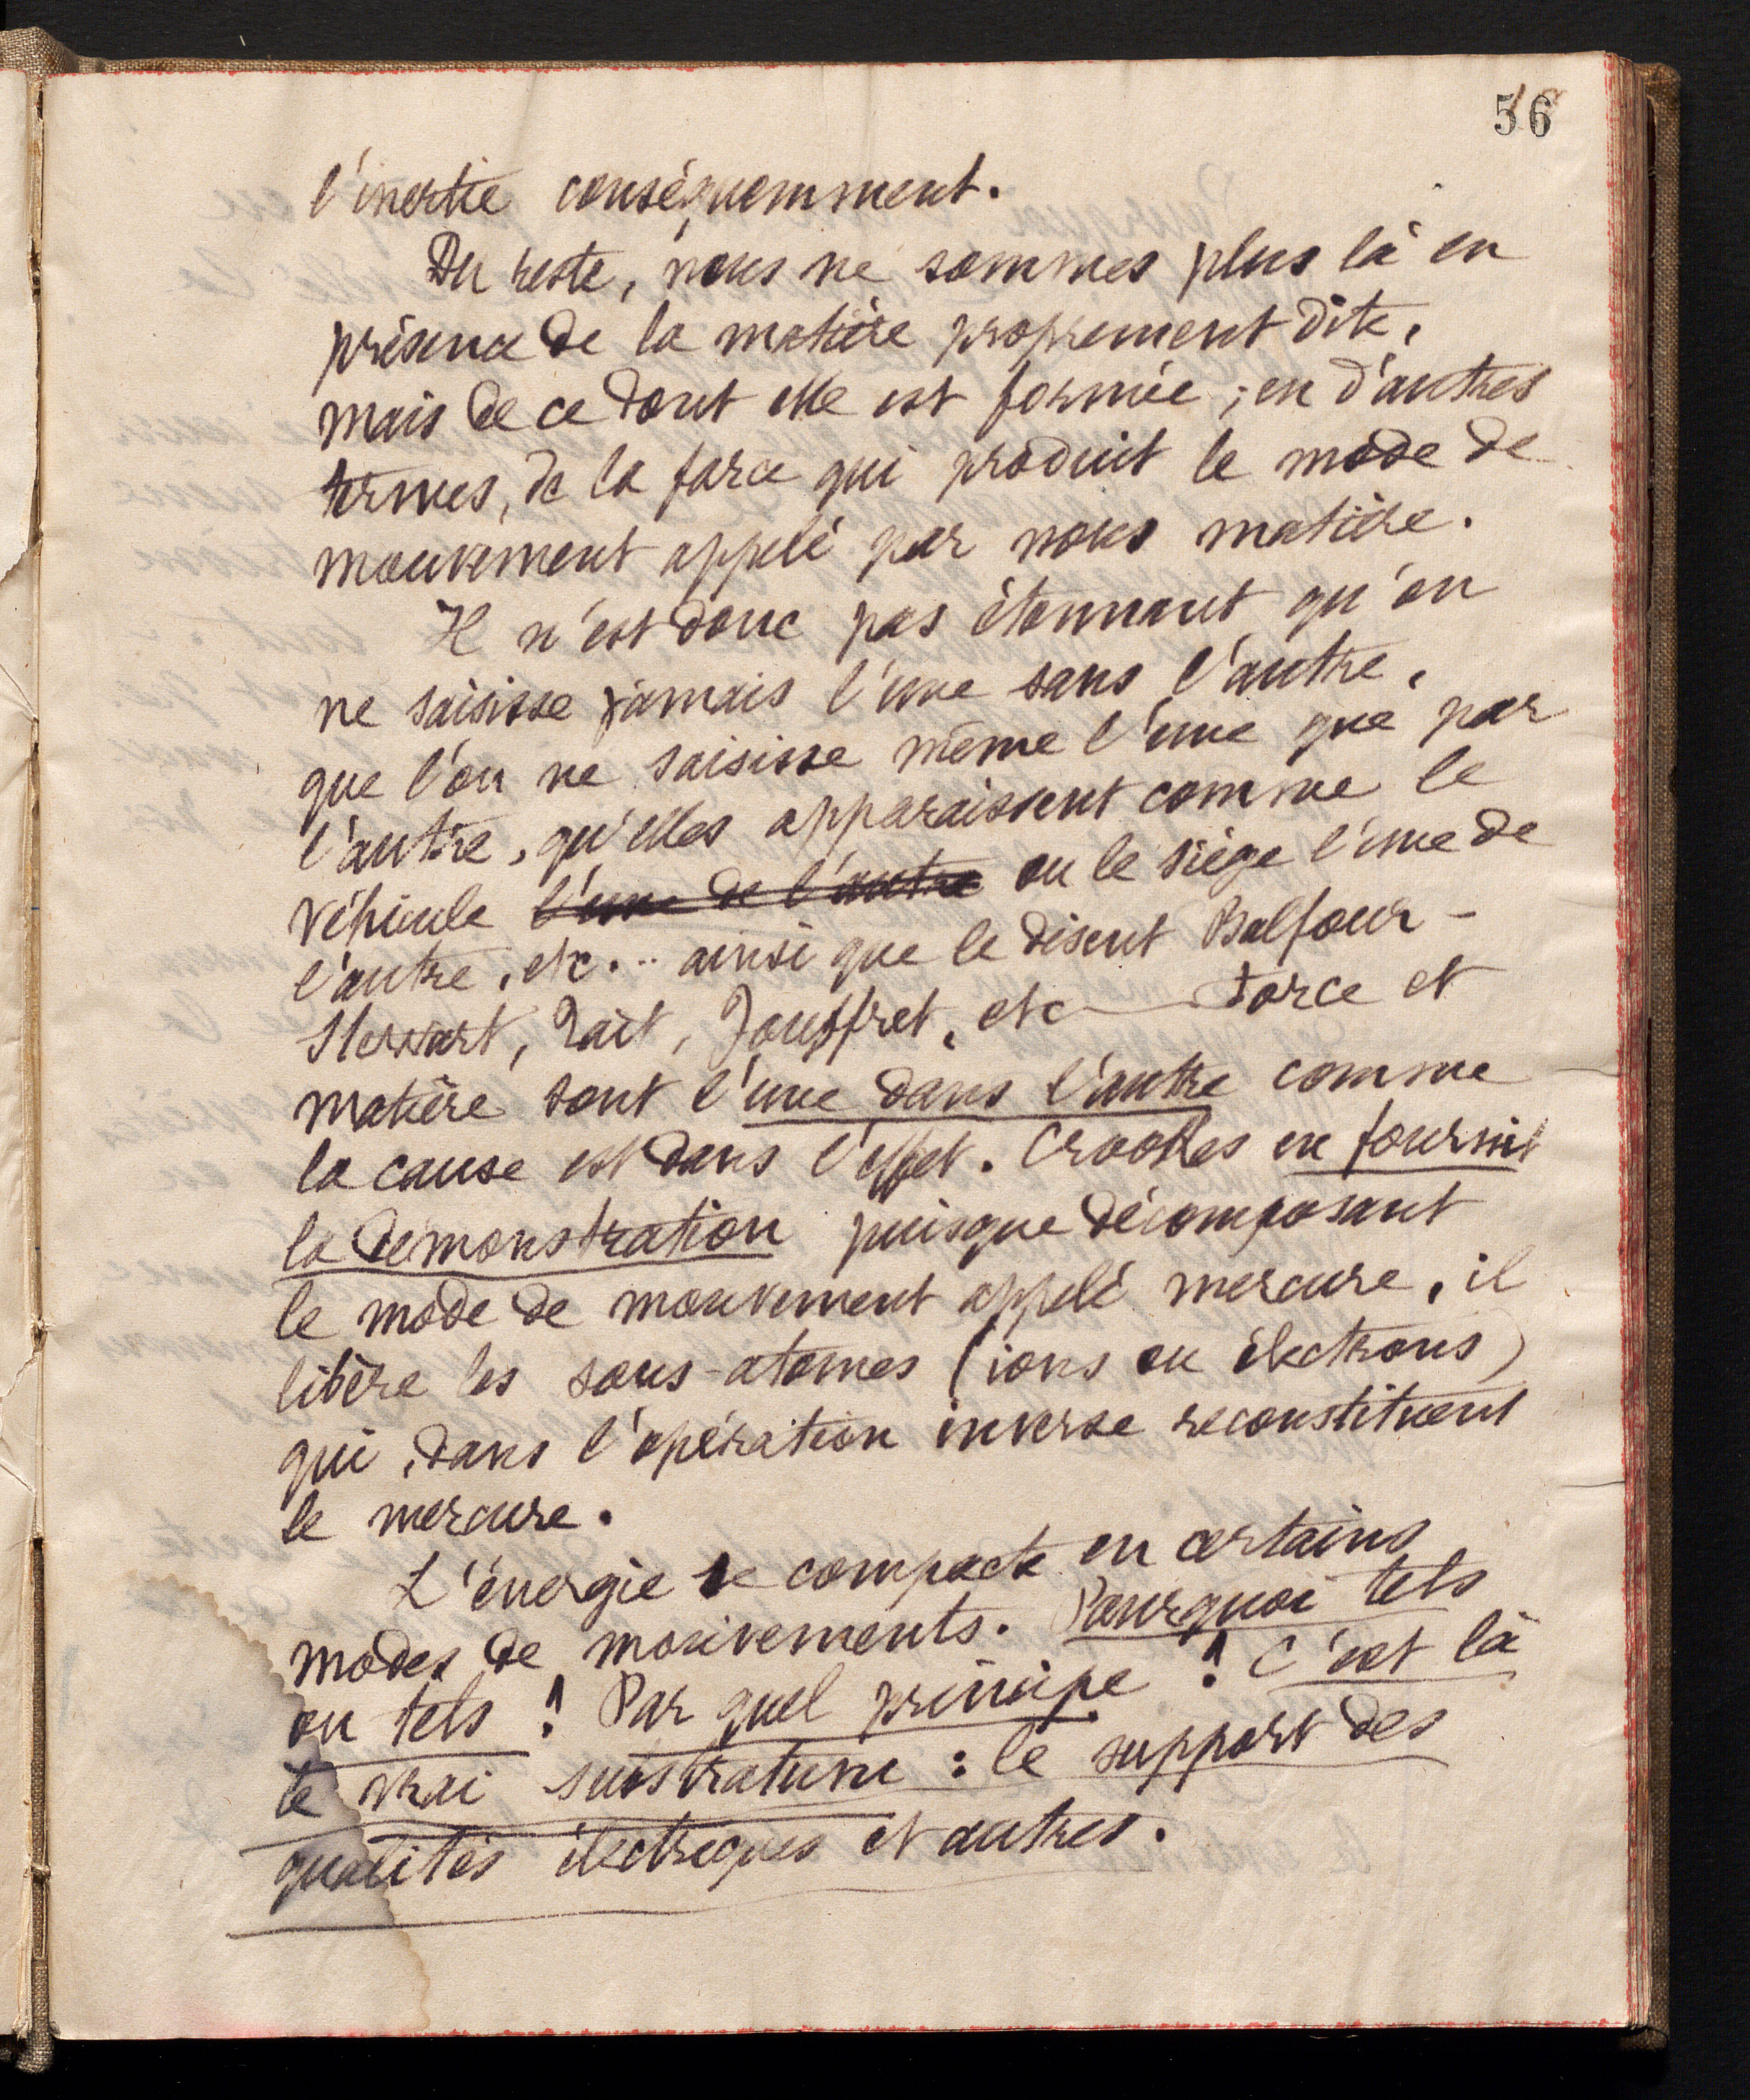 56
l'inertie conséquemment.
Du reste, nous ne sommes plus là en
présence de la matière proprement dite,
mais de ce dont elle est formée ; en d'autres
termes, de la force qui produit le mode de
mouvement appelé par nous matière.
Il n'est donc pas étonnant qu'on
ne saisisse jamais l'une sans l'autre,
que l'on ne saisisse même l'une que par
l'autre, qu'elles apparaissent comme le
véhicule l'une de l'autre ou le siège l'une de
l'autre, etc... ainsi que le disent Balfour-
Stewart, Tait, Jouffret, etc — Force et
matière sont l'une dans l'autre comme
la cause est dans l'effet. Crookes en fournit
la démonstration puisque décomposant
le mode de mouvement appelé mercure, il
libère les sous-atomes (ions ou électrons)
qui, dans l'opération inverse reconstituent
le mercure.
L'énergie se compacte en certains
modes de mouvements. Pourquoi tels
ou tels ? Par quel principe ? C'est là
le vrai substratum : le support des
qualités électriques et autres.